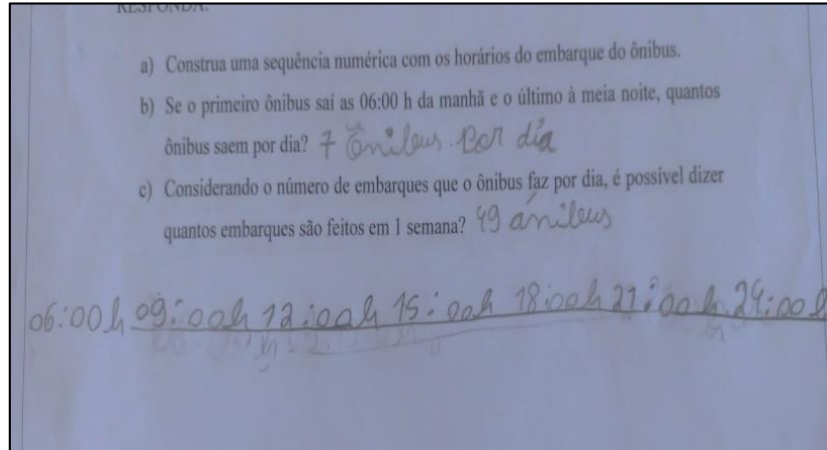 RESPONDA:
a) Construa uma sequência numérica com os horários do embarque do ônibus.
b) Se o primeiro ônibus sai as 06:00 h da manhã e o último à meia noite, quantos
ônibus saem por dia? 7 ônibus por dia
c) Considerando o número de embarques que o ônibus faz por dia, é possível dizer
quantos embarques são feitos em 1 semana? 49 ánibus
06:00h 09:00h 12:00h 15:00h 18:00h 21:00h 24:00h